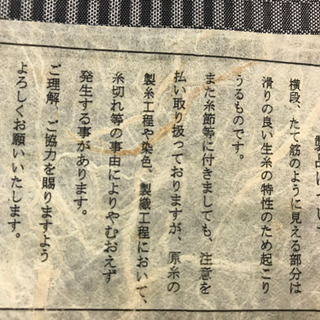 製品について
横段、たて筋のように見える部分は
滑りの良い生糸の特性のため起こり
うるものです。
また糸節等に付きましても、注意を
払い取り扱っておりますが、原糸の
製糸工程や染色、製織工程において、
糸切れ等の事由によりやむおえず
発生する事があります。
ご理解、ご協力を賜りますよう
よろしくお願いいたします。